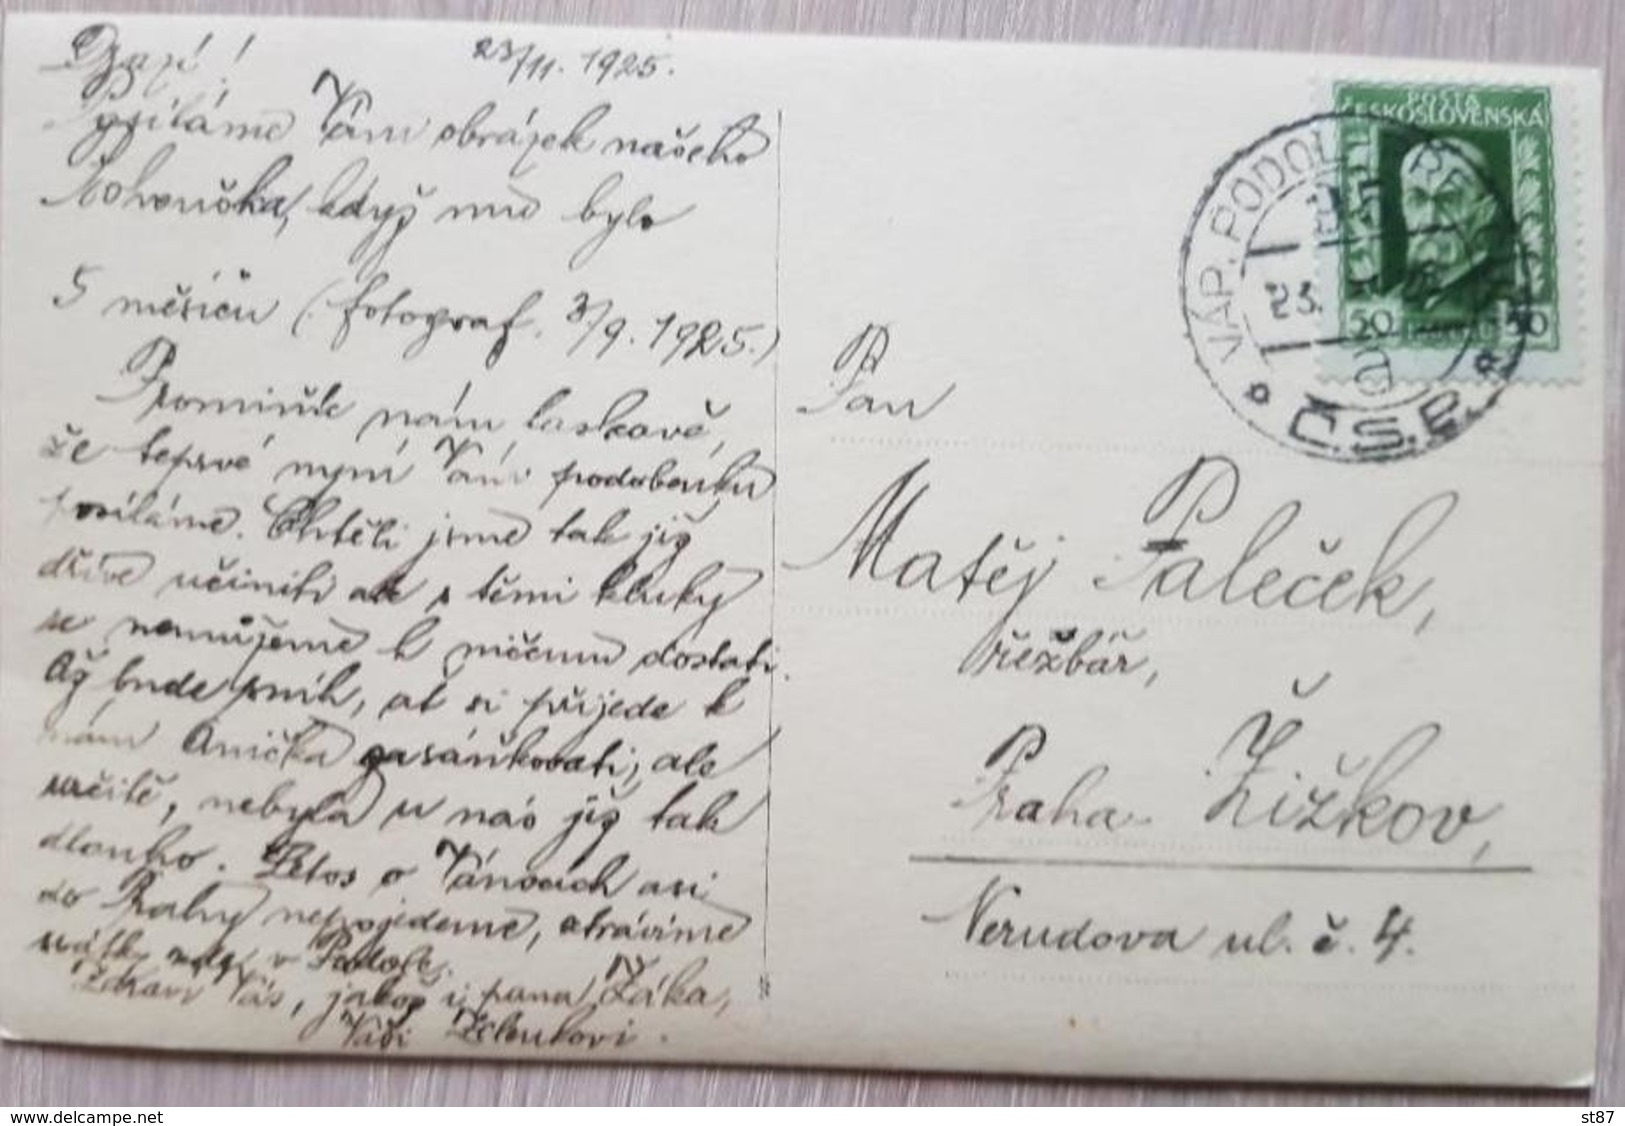 Drazí!
23/11. 1925.
Posíláme Vám obrázek našeho
Kohoutka, když mu bylo
5 měsíců (fotograf. 3/9. 1925.)
Promiňte nám laskavě,
že teprvé nyní Vám podobenku
posíláme. Chtěli jsme tak již
dříve učiniti ale s těmi kluky
se nemůžeme k ničemu dostati.
Až bude sníh, ať si přijede k
nám Anička zasáňkovati, ale
určitě, nebyla u nás již tak
dlouho. Letos o Vánocích asi
do Prahy nepojedeme, strávíme
svátky v Podole.
Zdraví Vás, jakož i pana Žáka,
Vaši
POŠTA
ČESKOSLOVENSKÁ
50 50
VÁP. PODOL
23.
a
Č.S.R.
Pan
Matěj Paleček,
řežbář,
Praha Žižkov,
Nerudova ul. č. 4.
delcampe.net
st87